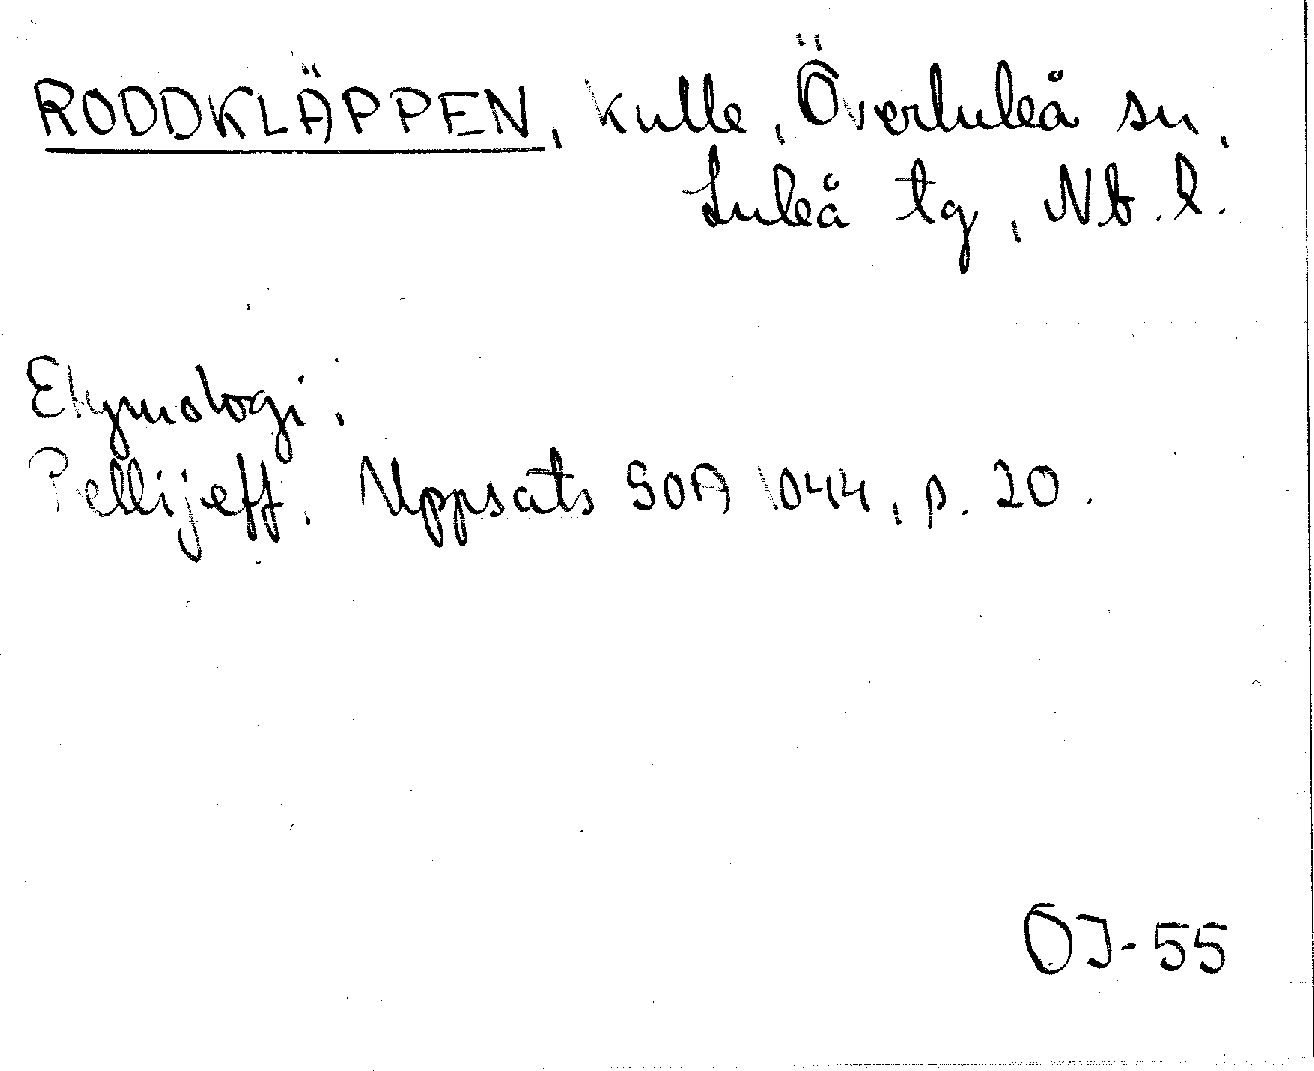 RODDKLÄPPEN, kulle, Överluleå sn,
Luleå tg, Nb. l.
Etymologi.
Pellijeff. Uppsats SOA 1044, p. 20.
OJ-55